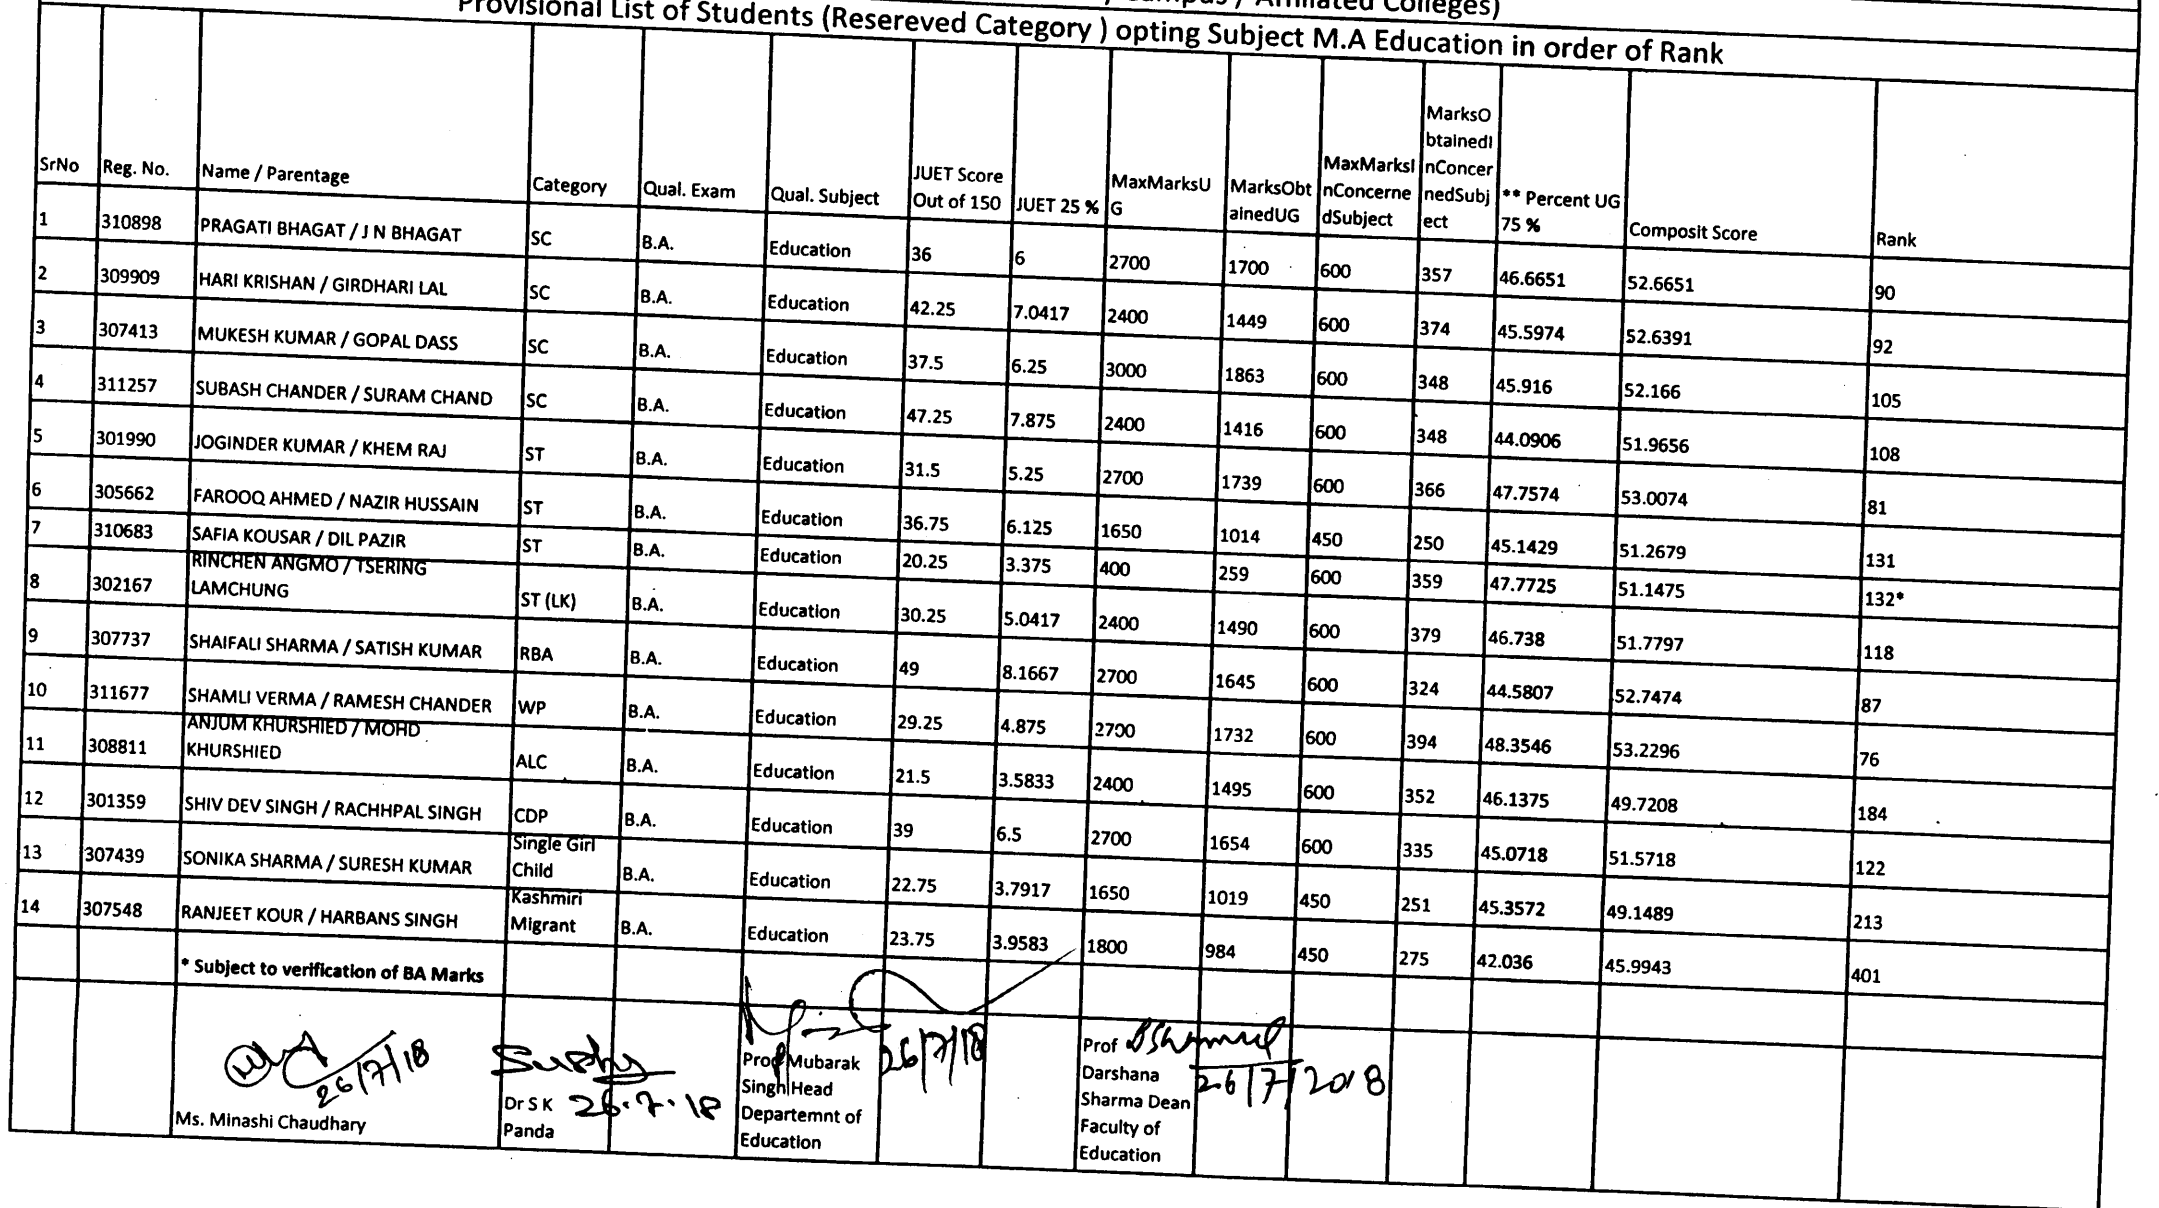 / Campus / Affiliated Colleges)
Provisional List of Students (Resereved Category ) opting Subject M.A Education in order of Rank
SrNo Reg. No. Name / Parentage Category Qual. Exam Qual. Subject JUET Score Out of 150 JUET 25 % MaxMarksUG MarksObtainedUG MaxMarksInConcernedSubject MarksObtainedInConcernedSubject ** Percent UG 75 % Composit Score Rank
1 310898 PRAGATI BHAGAT / J N BHAGAT SC B.A. Education 36 6 2700 1700 600 357 46.6651 52.6651 90
2 309909 HARI KRISHAN / GIRDHARI LAL SC B.A. Education 42.25 7.0417 2400 1449 600 374 45.5974 52.6391 92
3 307413 MUKESH KUMAR / GOPAL DASS SC B.A. Education 37.5 6.25 3000 1863 600 348 45.916 52.166 105
4 311257 SUBASH CHANDER / SURAM CHAND SC B.A. Education 47.25 7.875 2400 1416 600 348 44.0906 51.9656 108
5 301990 JOGINDER KUMAR / KHEM RAJ ST B.A. Education 31.5 5.25 2700 1739 600 366 47.7574 53.0074 81
6 305662 FAROOQ AHMED / NAZIR HUSSAIN ST B.A. Education 36.75 6.125 1650 1014 450 250 45.1429 51.2679 131
7 310683 SAFIA KOUSAR / DIL PAZIR ST B.A. Education 20.25 3.375 400 259 600 359 47.7725 51.1475 132*
8 302167 RINCHEN ANGMO / TSERING LAMCHUNG ST (LK) B.A. Education 30.25 5.0417 2400 1490 600 379 46.738 51.7797 118
9 307737 SHAIFALI SHARMA / SATISH KUMAR RBA B.A. Education 49 8.1667 2700 1645 600 324 44.5807 52.7474 87
10 311677 SHAMLI VERMA / RAMESH CHANDER WP B.A. Education 29.25 4.875 2700 1732 600 394 48.3546 53.2296 76
11 308811 ANJUM KHURSHIED / MOHD KHURSHIED ALC B.A. Education 21.5 3.5833 2400 1495 600 352 46.1375 49.7208 184
12 301359 SHIV DEV SINGH / RACHHPAL SINGH CDP B.A. Education 39 6.5 2700 1654 600 335 45.0718 51.5718 122
13 307439 SONIKA SHARMA / SURESH KUMAR Single Girl Child B.A. Education 22.75 3.7917 1650 1019 450 251 45.3572 49.1489 213
14 307548 RANJEET KOUR / HARBANS SINGH Kashmiri Migrant B.A. Education 23.75 3.9583 1800 984 450 275 42.036 45.9943 401
* Subject to verification of BA Marks
26/7/18
Ms. Minashi Chaudhary
26.7.18
Dr S K
Panda
26/7/18
Prof Mubarak
Singh Head
Departemnt of
Education
26/7/2018
Prof
Darshana
Sharma Dean
Faculty of
Education